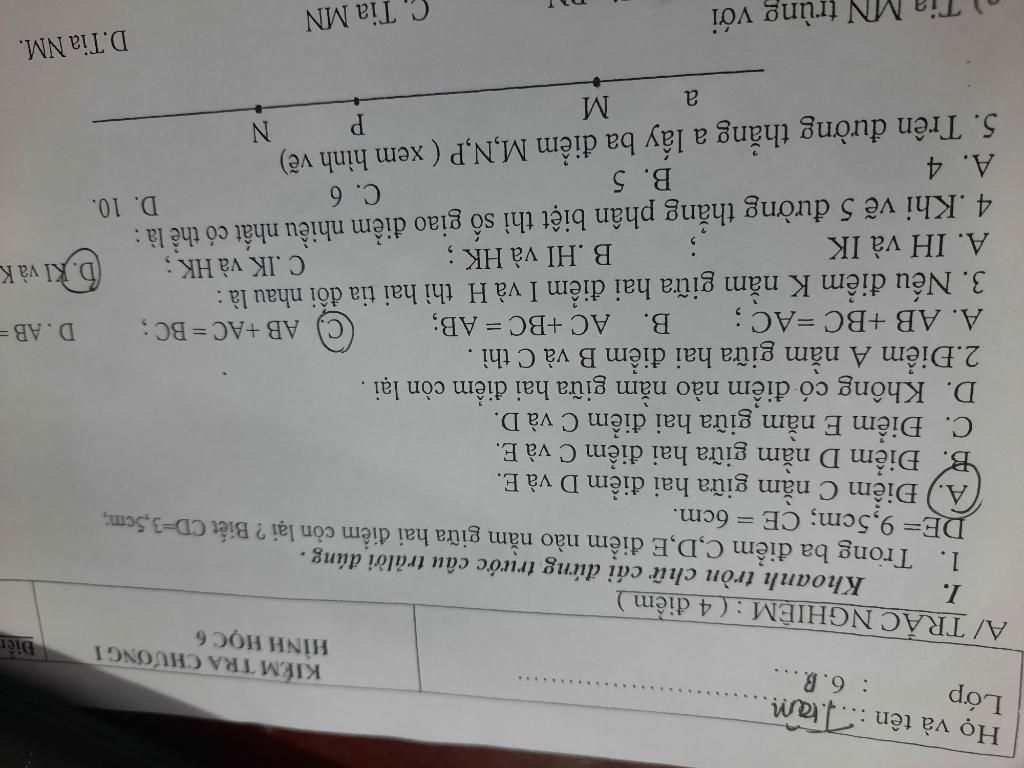 Họ và tên :....Trâm..............................
Lớp : 6.B....
KIỂM TRA CHƯƠNG I
HÌNH HỌC 6
A/ TRẮC NGHIỆM : ( 4 điểm )
I. Khoanh tròn chữ cái đứng trước câu trảlời đúng .
1. Trong ba điểm C,D,E điểm nào nằm giữa hai điểm còn lại ? Biết CD=3,5cm;
DE= 9,5cm; CE = 6cm.
A. Điểm C nằm giữa hai điểm D và E.
B. Điểm D nằm giữa hai điểm C và E.
C. Điểm E nằm giữa hai điểm C và D.
D. Không có điểm nào nằm giữa hai điểm còn lại .
2.Điểm A nằm giữa hai điểm B và C thì .
A. AB +BC =AC ; B. AC +BC = AB; C. AB +AC = BC ; D . AB =
3. Nếu điểm K nằm giữa hai điểm I và H thì hai tia đối nhau là :
A. IH và IK ; B. HI và HK ; C. IK và HK ; D. KI và K
4 .Khi vẽ 5 đường thẳng phân biệt thì số giao điểm nhiều nhất có thể là :
A. 4 B. 5 C. 6 D. 10.
5. Trên đường thẳng a lấy ba điểm M,N,P ( xem hình vẽ)
a M P N
Tia MN trùng với
C. Tia MN D.Tia NM.